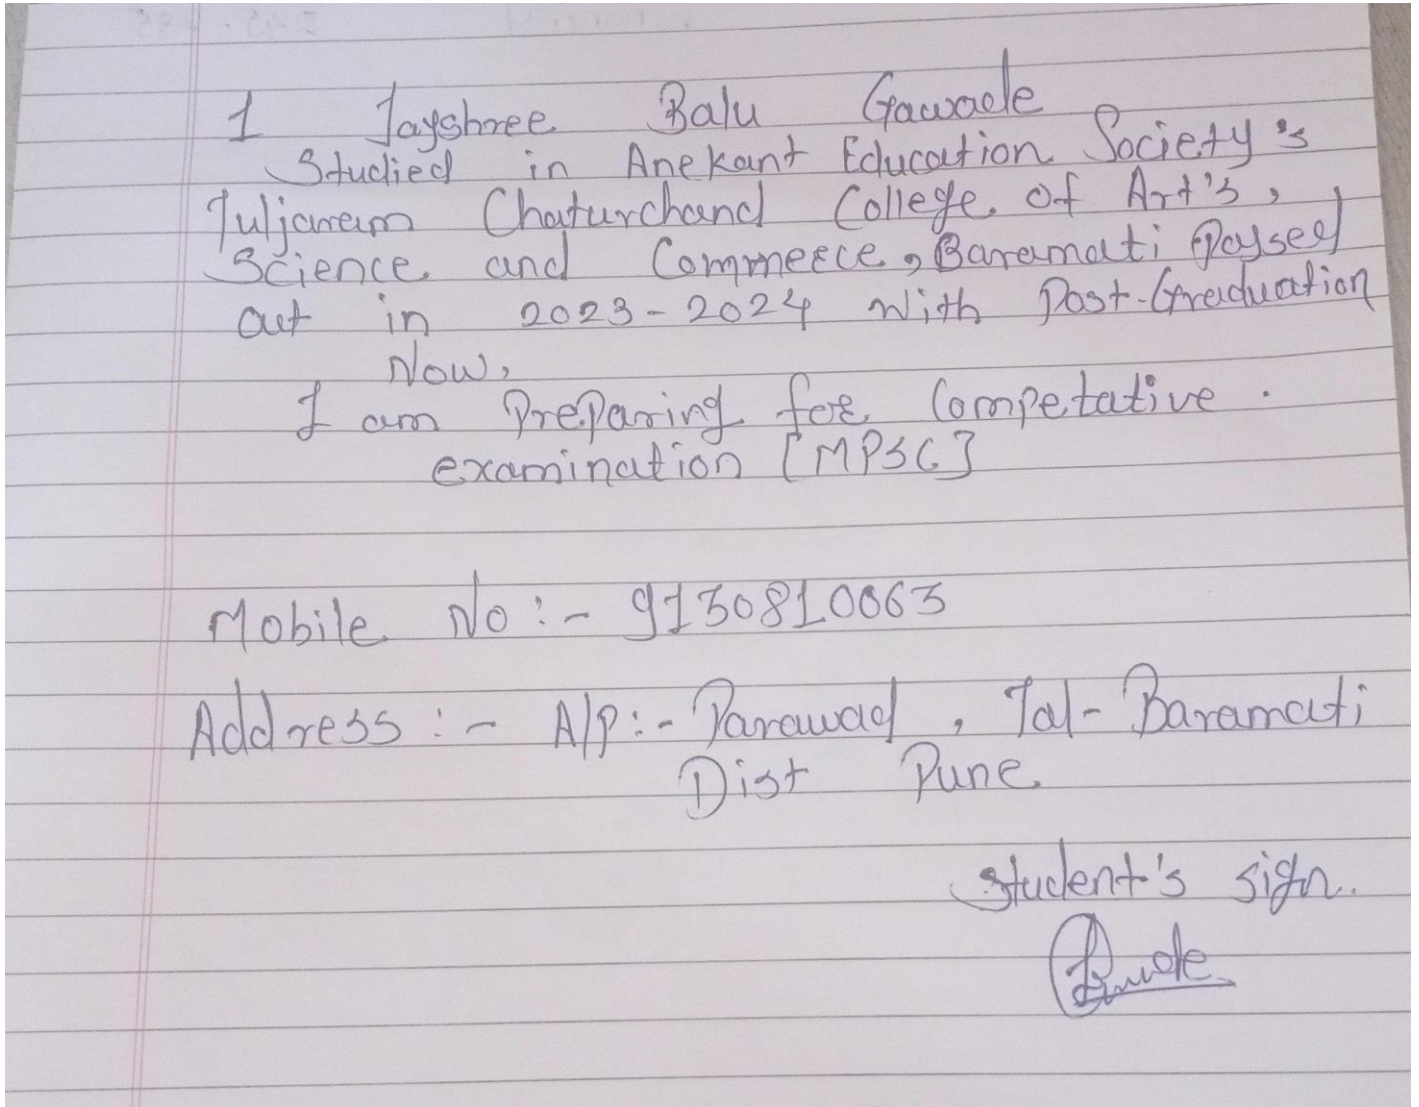 I Jayshree Balu Gawade
Studied in Anekant Education Society's
Tuljaram Chaturchand College of Art's,
Science and Commerce, Baramati Paysed
out in 2023-2024 with Post-Graduation
Now,
I am Preparing for Competative .
examination [MPSC]
Mobile No :- 9130810063
Address :- A/P :- Parawad , Tal - Baramati
Dist Pune
student's sign.